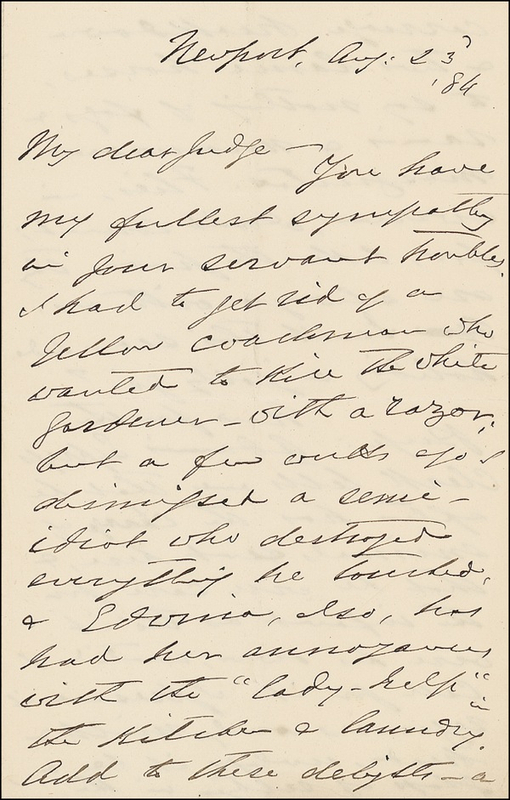 Newport, Aug: 23
'84
My dear Judge —
You have
my fullest sympathy
in your servant troubles.
I had to get rid of a
Yellow coachman who
wanted to kill the white
gardener — with a razor;
but a few weeks ago I
dismissed a semi-
idiot who destroyed
everything he touched,
& Edwina, also, has
had her annoyances
with the "lady-help" in
the Kitchen & laundry.
Add to these delights — a